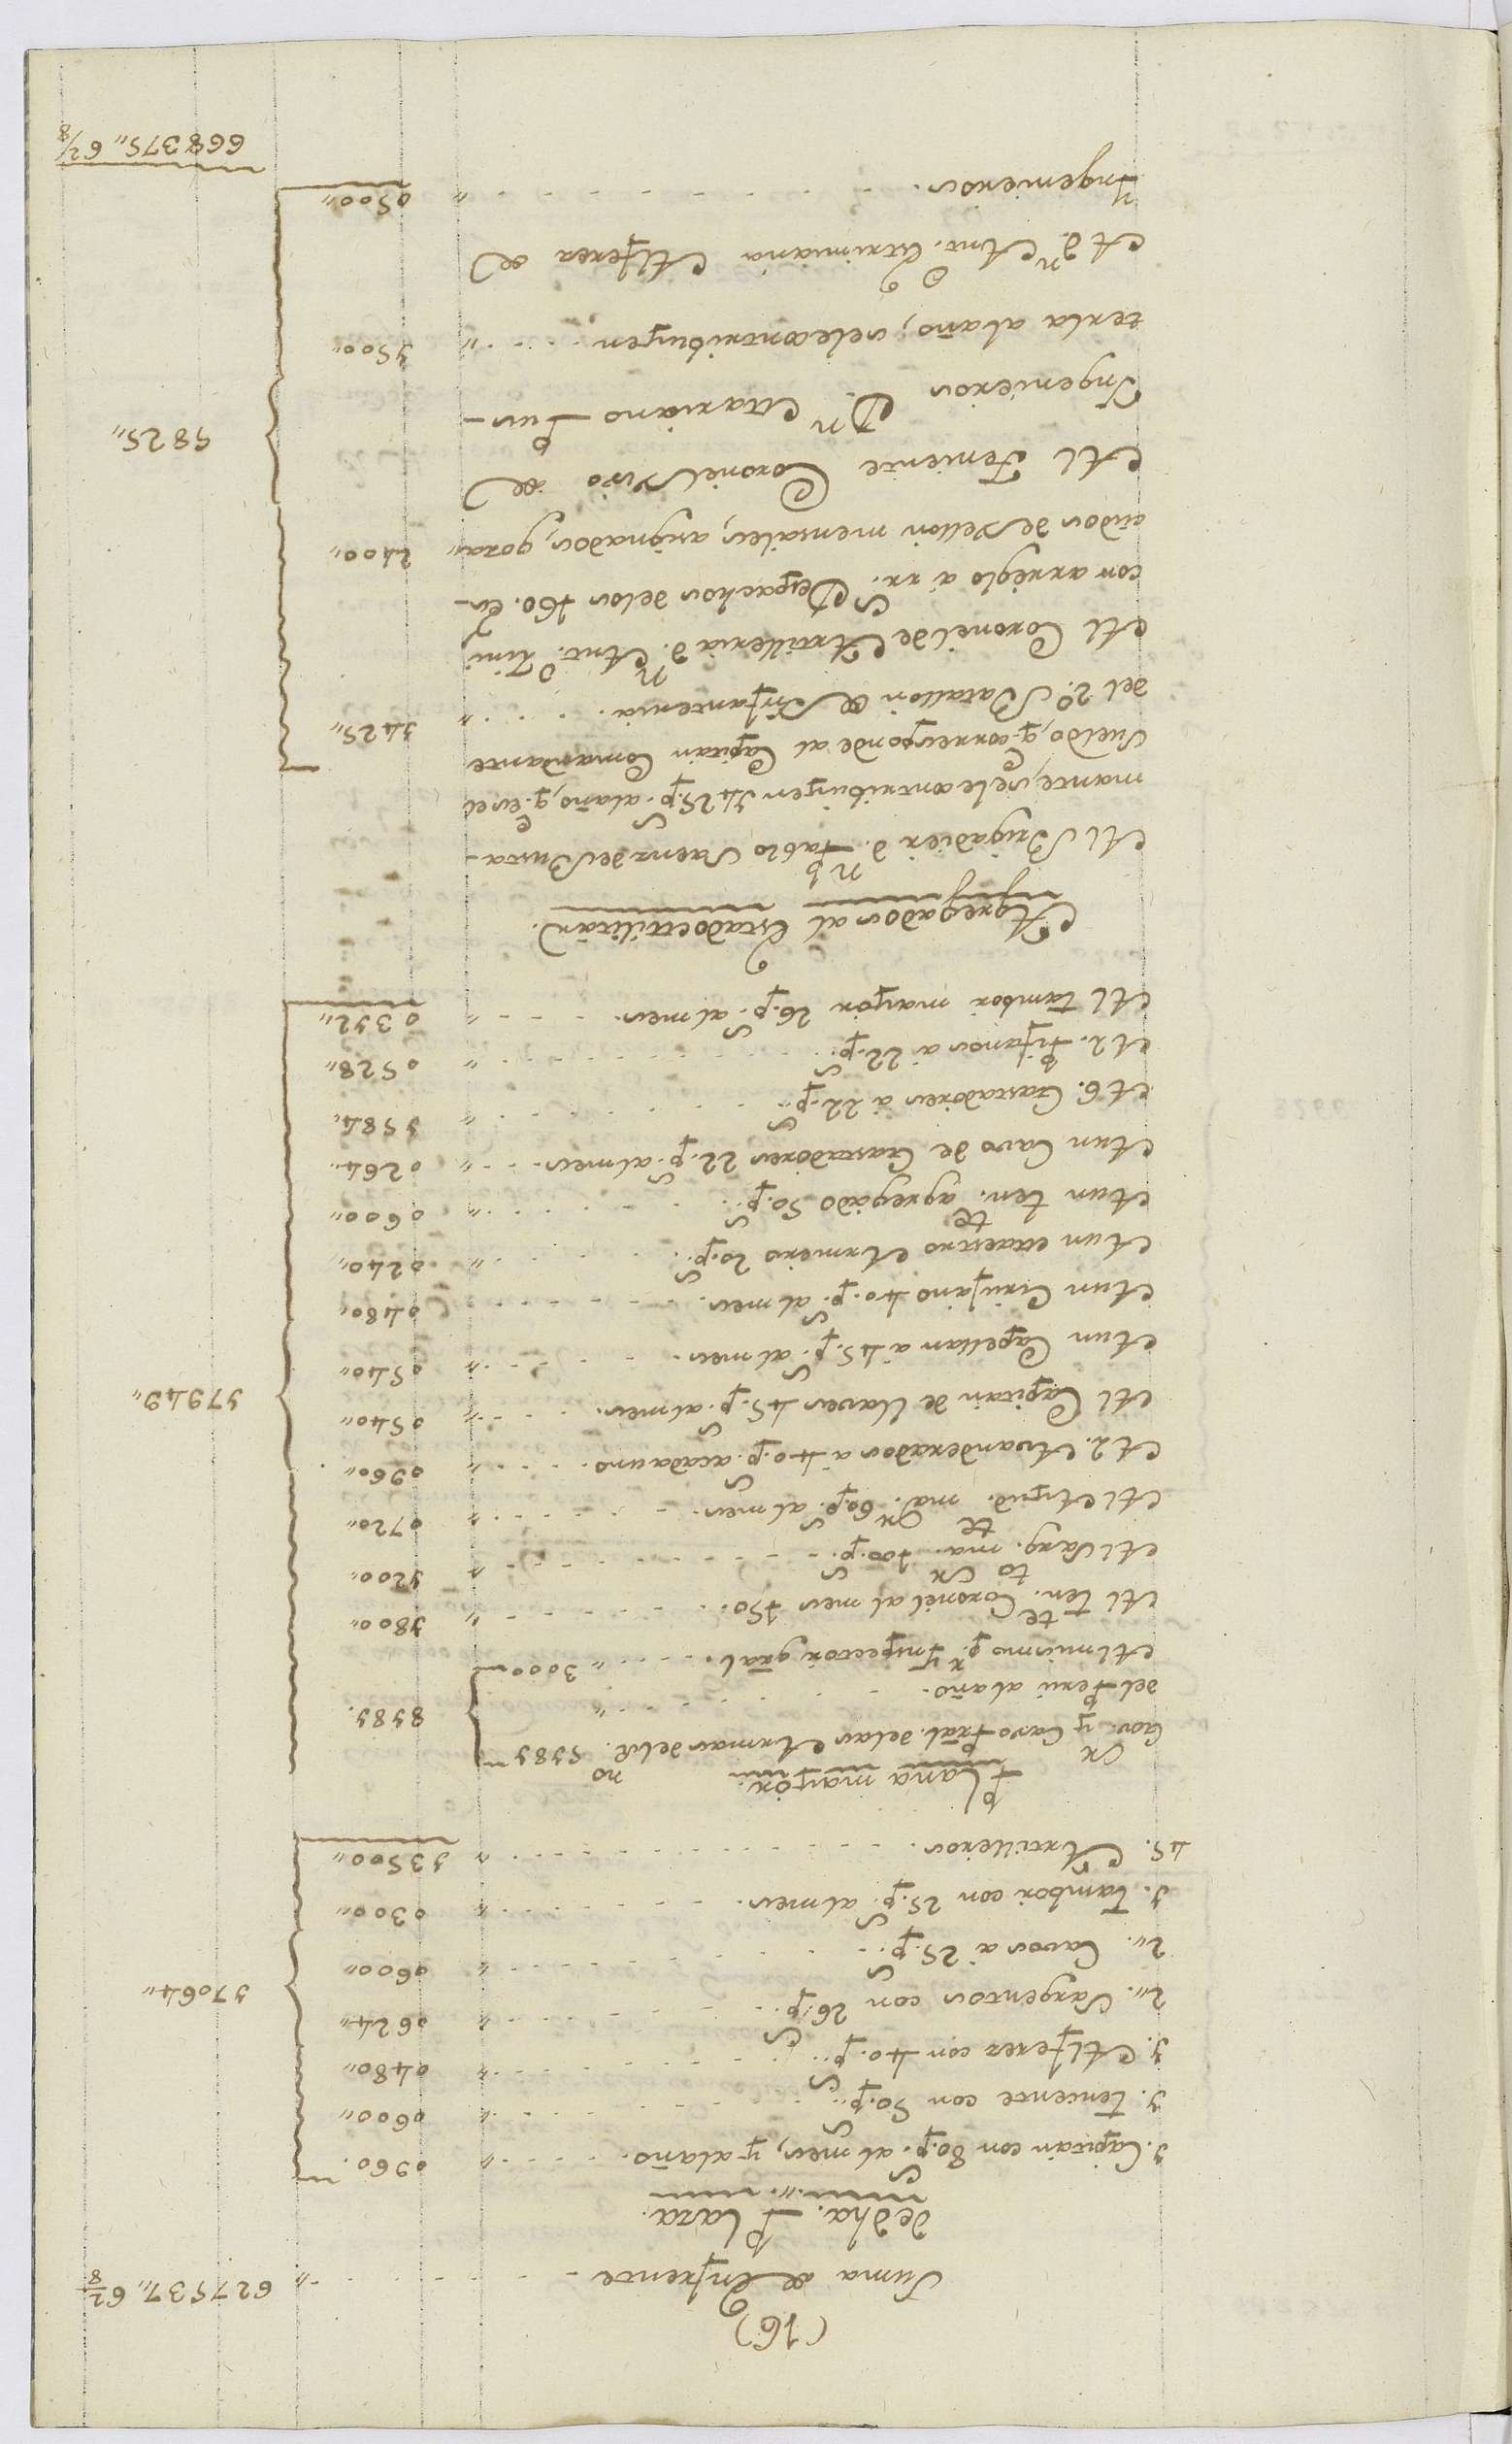 (16)
Suma de Enfrente - - - - - " 627537" 6 2/8
de dha. Plaza.
1. Capitán con 80. p.s al mes, y al año. . . . . " 0960.
1. teniente con 50. p.s . . . . . " 0600"
1. Alferez con 40. p.s . . . . . " 0480"
2". Sargentos con 26. p.s . . . . . " 0624"
2". Cavos á 25. p.s . . . . . " 0600" 17064"
1. tambor con 25. p.s al mes. . . . . " 0300"
45. Artilleros. . . . . . " 13500"
Plana mayór.
Gov.or y Cavo Pral. de las Armas del R.no 5181
del Perú al año. . . . . . " 8181.
Al mismo p.r Ynspector gral. . . . " 3000
Al ten.te Coronel al mes 150. . . . . " 1800"
Al Sarg.to ma.or 100. p.s . . . . . " 1200"
Al Ayud.te ma.or 60. p.s al mes. . . . . " 0720"
A 2. Avanderados á 40. p.s acada uno. . . . " 0960"
Al Capitán de llaves 45. p.s al mes. . . . . " 0540"
A un Capellan á 45. p.s al mes. . . . . " 0540" 17949"
A un Cirujano 40. p.s al mes. . . . . " 0480"
A un Maestro Armero 20. p.s . . . . " 0240"
A un ten.te agregádo 50. p.s . . . . " 0600"
A un Cavo de Gastadóres 22. p.s al mes. . . " 0264"
A 6. Gastadóres á 22. p.s . . . . . " 1584"
A 2. Pifanos á 22. p.s . . . . . " 0528"
Al tambor mayór 26. p.s al mes. . . . " 0312"
Agregados al Estado Militár.
Al Brigadier d.n Pablo Saenz de Busta-
mante, se le contribuyen 1425. p.s al año, q.e es el
Sueldo, q.e corresponde al Capitán Comandante
del 2.o Batallon de Ynfantería. . . . " 1425"
Al Coronel de Artilleria d.n Ant.o
con arreglo á rr.s Despachos de los 160. Es-
cudos de vellon mensales, asignados, goza" 2400"
Al Teniente Coronel vivo de 5825"
Yngenieros D.n Mariano Pus-
terla al año, se le contribuyen . . . " 1500"
A d.n Ant.o Alferez de
Yngenieros. . . . . . " 0500"
668375" 6 2/8